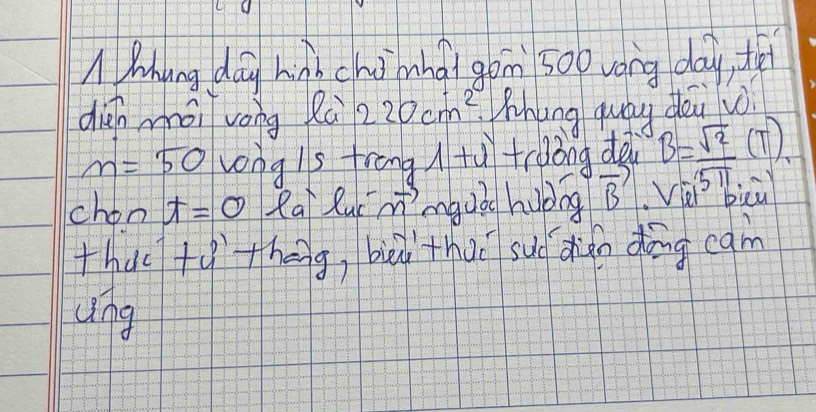 1 khung dây hình chữ nhật gồm 500 vòng dây, tiết
diện mỗi vòng là 220cm². Khung quay đều với
n = 50 vòng/s trong 1 từ trường đều B = √2/5π (T).
chọn t = 0 là lúc n⃗ ngược hướng B⃗. Viết biểu
thức từ thông, biểu thức suất điện động cảm
ứng